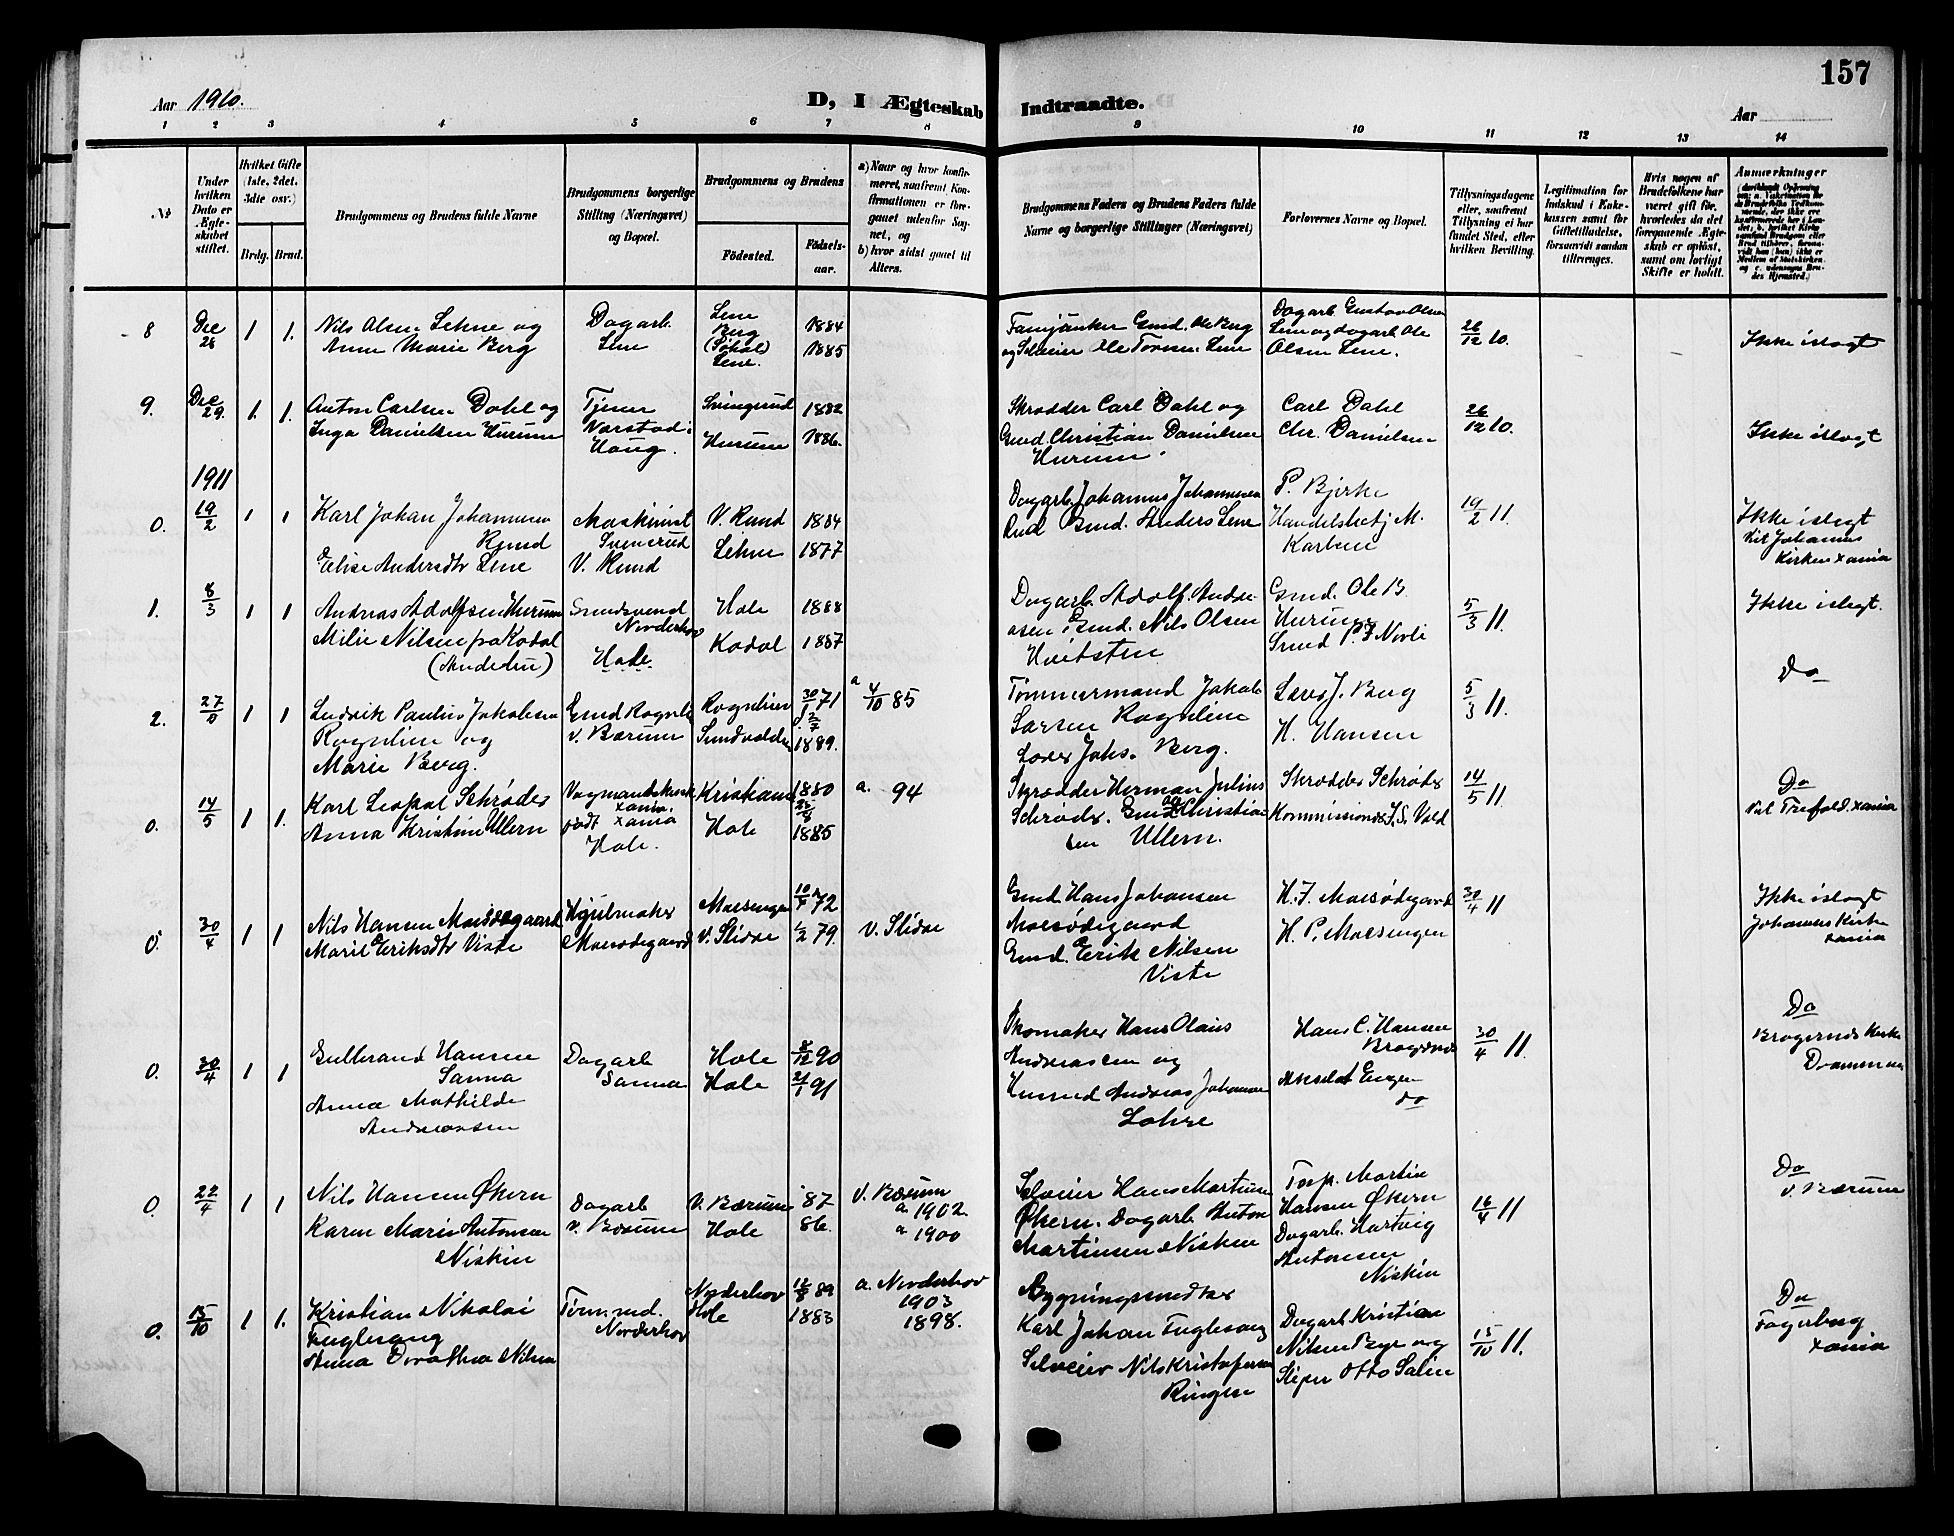 157
Aar 1910.
D, I Ægteskab Indtraadte.
Aar
1 2 3 4 5 6 7 8 9 10 11 12 13 14
No
Under hvilken Dato er Ægteskabet stiftet.
Hvilket Gifte (1ste, 2det, 3die osv.)
Brdg. Brud.
Brudgommens og Brudens fulde Navne
Brudgommens borgerlige Stilling (Næringsvei) og Bopæl.
Brudgommens og Brudens
Födested.
Födselsaar.
a) Naar og hvor konfirmeret, saafremt Konfirmationen er foregaaet udenfor Sognet, og
b) hvor sidst gaaet til Alters.
Brudgommens Faders og Brudens Faders fulde Navne og borgerlige Stillinger (Næringsvei)
Forlovernes Navne og Bopæl.
Tillysningsdagene eller, saafremt Tillysning ei har fundet Sted, efter hvilken Bevilling.
Legitimation for Indskud i Enkekassen samt for Giftetilladelse, forsaavidt saadan tiltrænges.
Hvis nogen af Brudefolkene har været gift för, hvorledes da det foregaaende Ægteskab er oplöst, samt om lovligt Skifte er holdt.
Anmærkninger
8 Dec 28 1 1. Nils Olsen Lehne og
Anne Marie Berg
Dagarb.
Lene
Lene
Berg
(Søhol)
Lene.
1884
1885
Gmd. Ole Berg
og Selveier Ole Torsen Lene
Dagarb Gustav Olsen
Lene og dagarb Ole
Olsen Lene.
26/12 10.
Ikke islegt
9. Dec 29. 1. 1. Anton Carlsen Dahl og
Inga Danielsen Hurum
Tjener
Narstad i
Haug.
Svingerud
Hurum
1882
1886.
Skrædder Carl Dahl og
Gmd. Christian Danielsen
Hurum.
Carl Dahl
Chr. Danielsen
26/12 10.
Ikke islegt
1911
0. 19/2 1 1 Karl Johan Johannesen
Rund
Elise Andersdtr Lene
Maskinist
Svenerud
V. Rund
V. Rund
Lehne
1884
1877
Dagarb. Johannes Johannesen
Rud Gmd. Anders Lene
P. Bjerke
Handelsbetj M.
Karlsen
19/2 11.
Ikke islegt
Vit Johannes
Kirken Xania
1. 8/3 1 1 Andreas Adolfsen Hurum
Milie Nilsen fra Kodal
Norderhov
Hole.
Hole
Kodal
1888
1887
Dagarb. Adolf Andre
asen, Gmd. Nils Olsen
Hvitsten
Gmd. Ole B.
Hurum
Smed P. I Norli
5/3 11.
Ikke islegt.
2. 1 1 Ludvik Paulius Jakobsen
Rognlien og
Marie Berg.
Gmd Rognli
v. Bærum
Rognlien
Sundvolden
30/1 71
1889.
a 4/10 85
Tømmermand Jakob
Larsen Rognlien
Lærer Johs. Berg.
Lærer J. Berg
H. Hansen
5/3 11.
Do
0. 14/5 1 1. Karl Leopol Schrøder
Anna Kristine Ullern
Xania
Hole.
Kristiania
Hole
1880
1885
a. 94
Skrædder Herman Julius
Schrøder. Gmd Christian
sen Ullern.
Skrædder Schrøder
14/5 11.
Do
Vit Trefold. Xania
0. 30/4 1 1 Nils Hansen Moesødegaard
Marit Eriksdtr Viste
Hjulmaker
Moesødegaard
Moesengen
V. Slidre
10/7 72
1/2 79.
V. Slidre
Gmd Hans Johansen
Moesødegaard
Gmd. Erik Nilsen
Viste
H. J. Moesødegaard
H. P. Moesengen
30/4 11
Ikke islegt
Johannes Kirke
Xania
0. 30/4 1 1 Gulbrand Hansen
Sanna
Anna Mathilde
Andreassen
Dagarb
Sanna
Hole
Hole
8/12 90
21/1 91
Skomaker Hans Olaus
Andreassen og
Husmd Andreas Johansen
Lohre
Hans C. Hansen
Bragernes
Engen
do
30/4 11.
Do
Bragernes Kirke
Drammen
0. 22/4 1 1 Nils Hansen Økern
Karen Marie Antonsen
Niskin
Dagarb
v. Bærum
V. Bærum
Hole
87
86.
V. Bærum
a 1902
a 1900
Selveier Hans Martinsen
Økern. Dagarb Anton
Martinsen Niskin
Martin
Hansen Økern
Dagarb. Hartvig
Antonsen
Niskin
16/4 11
Do
V. Bærum
0. 15/10 1 1. Kristian Nikolai
Fuglesang
Anna Dorothea Nilsen
Norderhov
Norderhov
Hole
12/8 89
1883
a. Norderhov
1903
1898.
Bygningssnedker
Karl Johan Fuglesang
Selveier Nils Kristofersen
Ringen
Dagarb Kristian
Nilsen Bye og
Sliper Otto Salin
15/10 11.
Do
Fagerborg
Xania